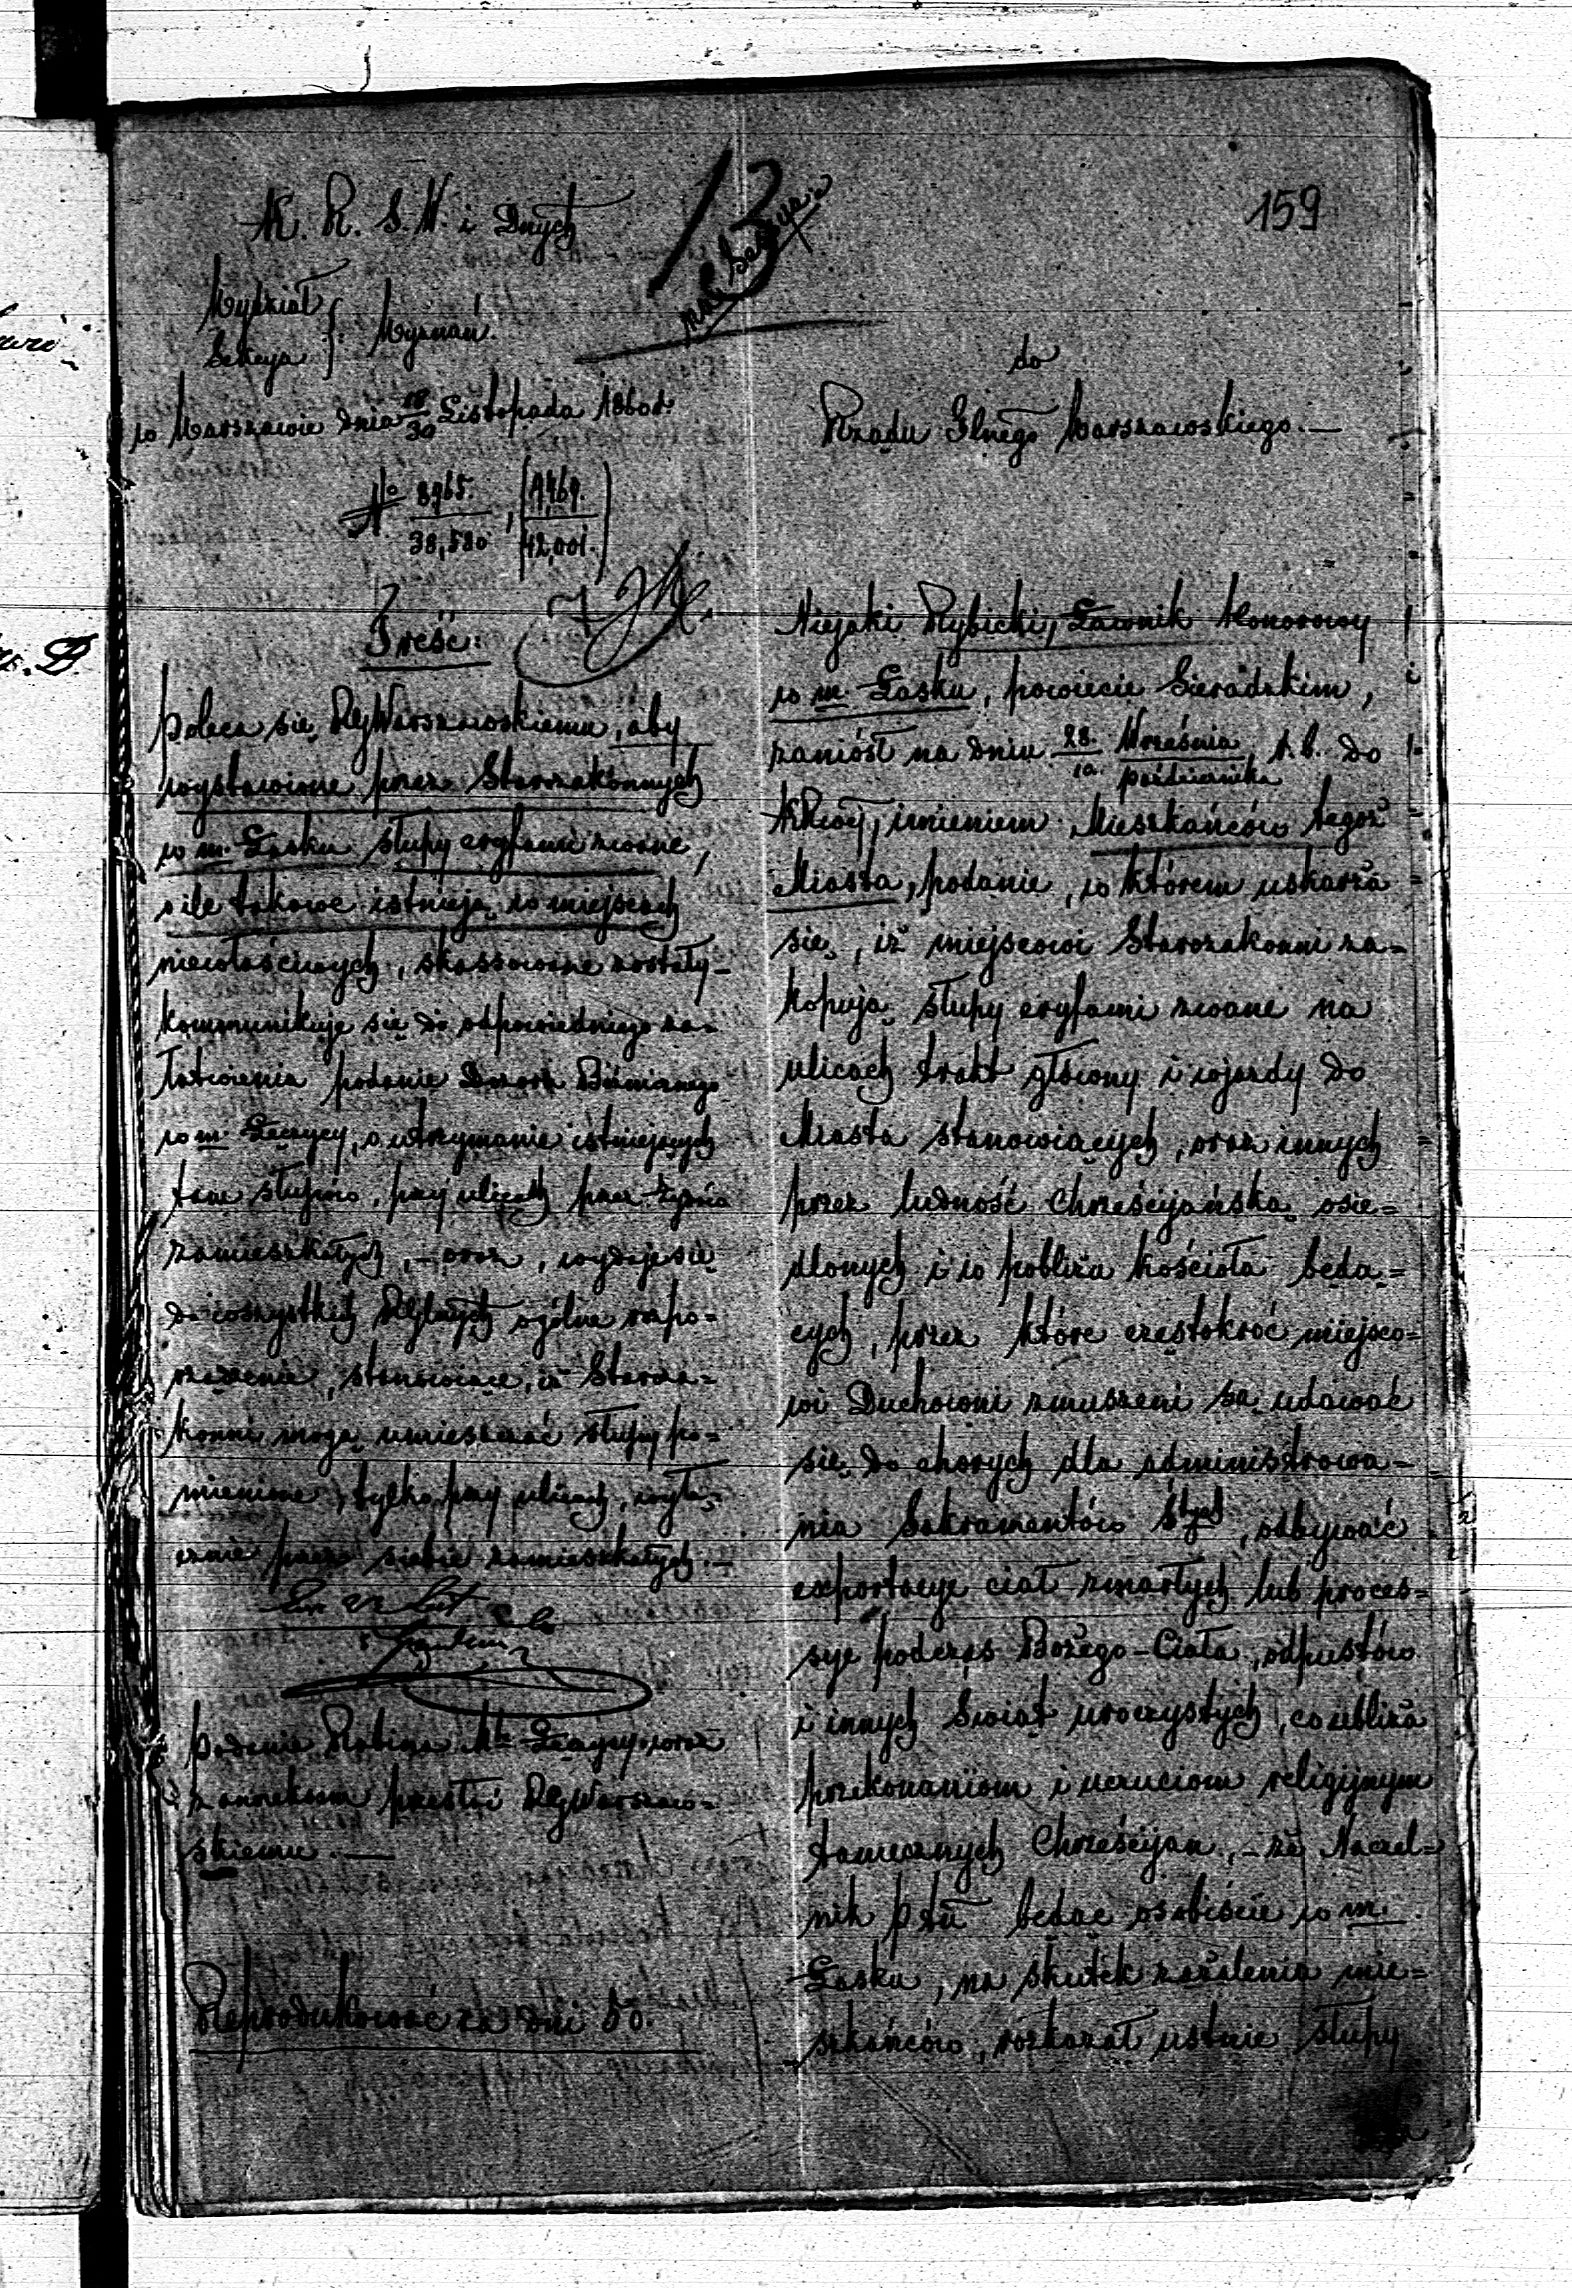 159
K. R. S. W. i Dnych
13
Wydział
Sekcya } Wyznań.
w Warszawie dnia 18/30 Listopada 1860 r.
No 8965. / 38,580 , ( / 42,001.)
Treść:
poleca się RGWarszawskiemu, aby
wystawione przez Starozakonnych
w m. Łasku słupy eryfami zwane,
o ile takowe istnieją w miejscach
niewłaściwych, skassowane zostały –
kommunikuje się do odpowiedniego za=
łatwienia podanie Dozoru Bóżniczego
w m. Łęczycy, o utrzymanie istniejących
tam słupów, przy ulicach przez Żydów
zamieszkałych, – oraz, wydaje się
do wszystkich RGlnych ogólne rozpo=
rządzenie, stanowiące, iż Staroza=
konni mogą umieszczać słupy po=
mienione, tylko przy ulicach, wyłą=
cznie przez siebie zamieszkałych. –
podanie Rabina Mta Łęczycy wraz
z annexum przesłać RGWarszaw=
skiemu. —
Reprodukować za dni 50.
do
Rządu Glnego Warszawskiego. —
Niejaki Rybicki, Ławnik Honorowy
w m. Łasku, powiecie Sieradzkim,
zaniósł na dniu 28. Września / 10. października r. b. do
KRwéj, imieniem Mieszkańców tegoż
Miasta, podanie, w którem uskarża
się, iż miejscowi Starozakonni za=
kopują słupy eryfami zwane na
ulicach trakt główny i wjazdy do
Miasta stanowiących, oraz innych
przez ludność Chrześcijańską osie=
dlonych i w pobliżu kościoła będą=
cych, przez które częstokroć miejsco=
wi Duchowni zmuszeni są udawać
się do chorych dla administrowa=
nia Sakramentów Stych, odbywać
exportacye ciał zmarłych lub proces=
sye podczas Bożego-Ciała, odpustów
i innych Świąt uroczystych, co ubliża
przekonaniom i uczuciom religijnym
tamecznych Chrześcijan, – że Naczel=
nik Ptu będąc osobiście w m.
Łasku, na skutek zażalenia mie=
szkańców, rozkazał ustnie słupy